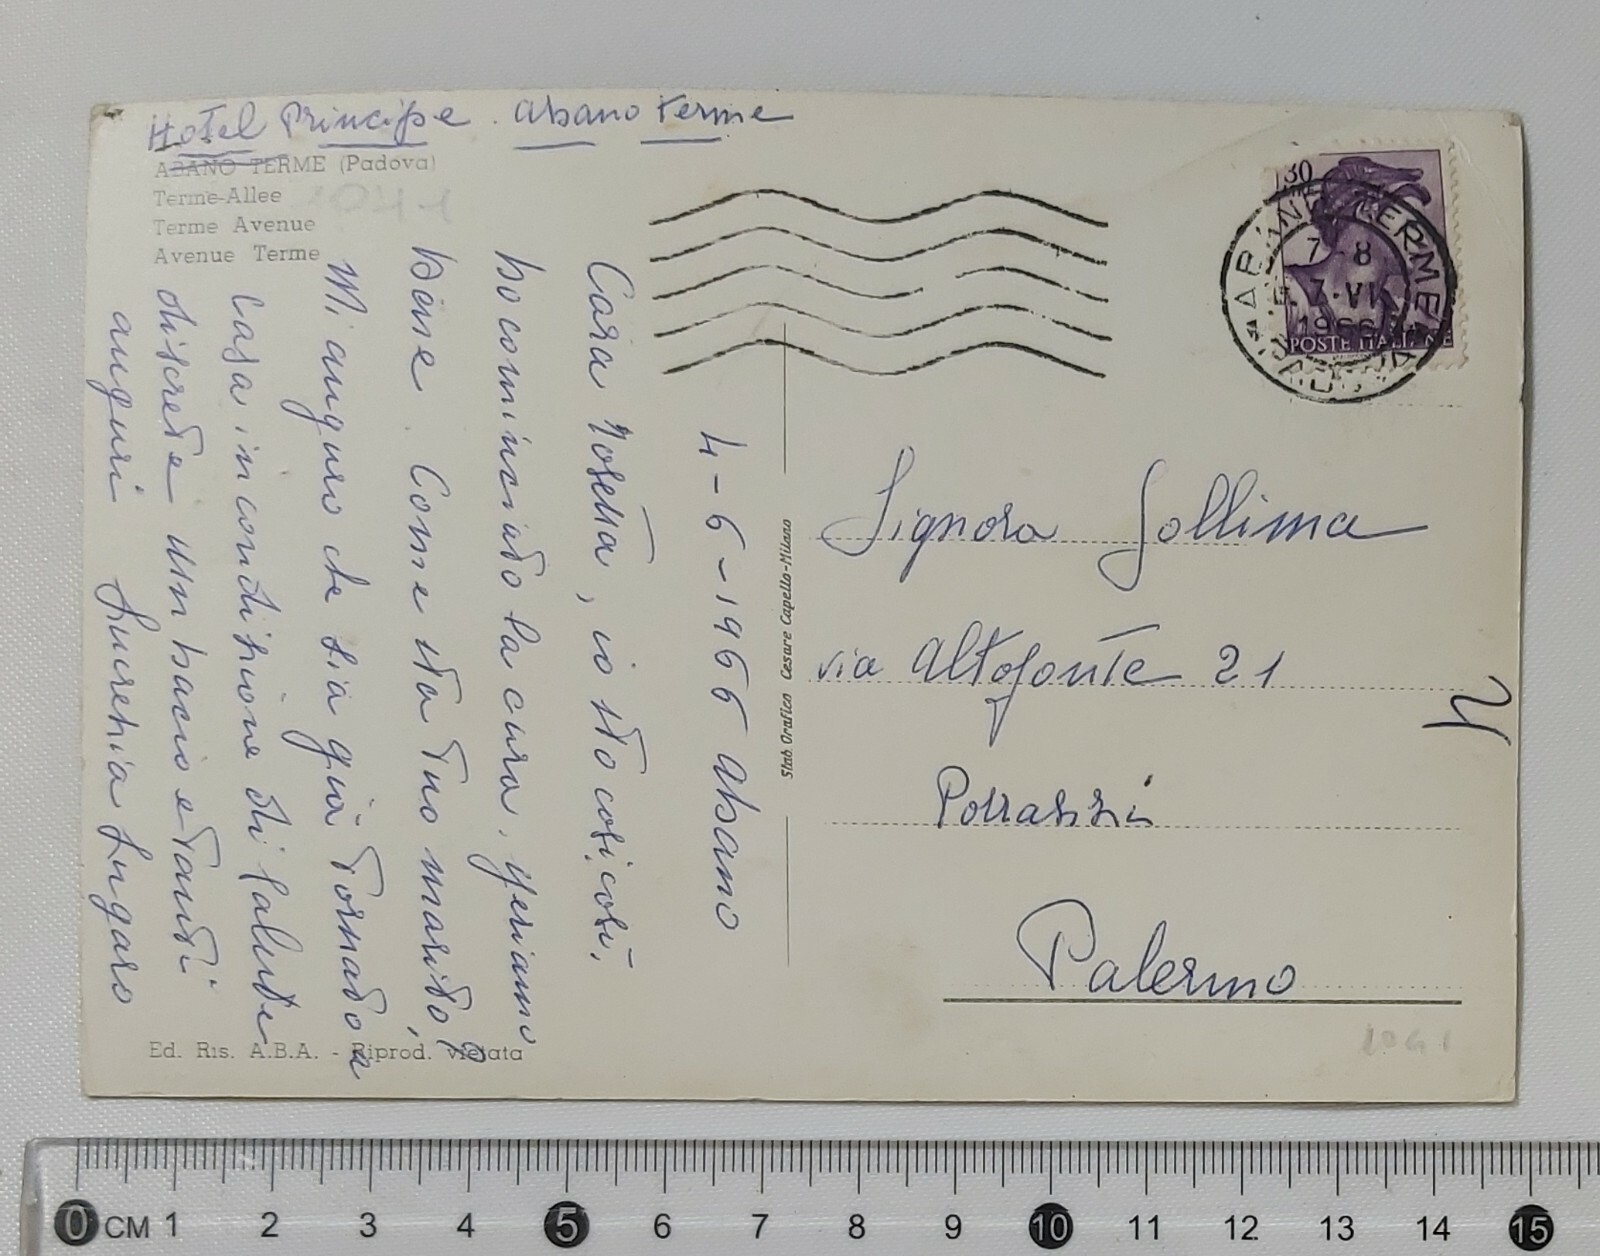 Hotel Principe. Abano Terme
ABANO TERME (Padova)
Terme-Allee
Terme Avenue
Avenue Terme
1041
4-6-1966 Abano
Cara Rosetta, io sto così, così,
ho cominciato la cura, speriamo
bene. Come sta tuo marito,?
Mi auguro che sia già tornato a
casa in condizione di salute
discrete un bacio e tanti
auguri Lucrezia Lugaro
Ed. Ris. A.B.A. - Riprod. vietata
Stab Grafico Cesare Capello-Milano
L. 30
LIRE
POSTE ITALIANE
ABANO TERME
7-8
7.VI
1966
Signora Sollima
via Altofonte 21
Porrazzi
Palermo
1041
0 CM 1 2 3 4 5 6 7 8 9 10 11 12 13 14 15